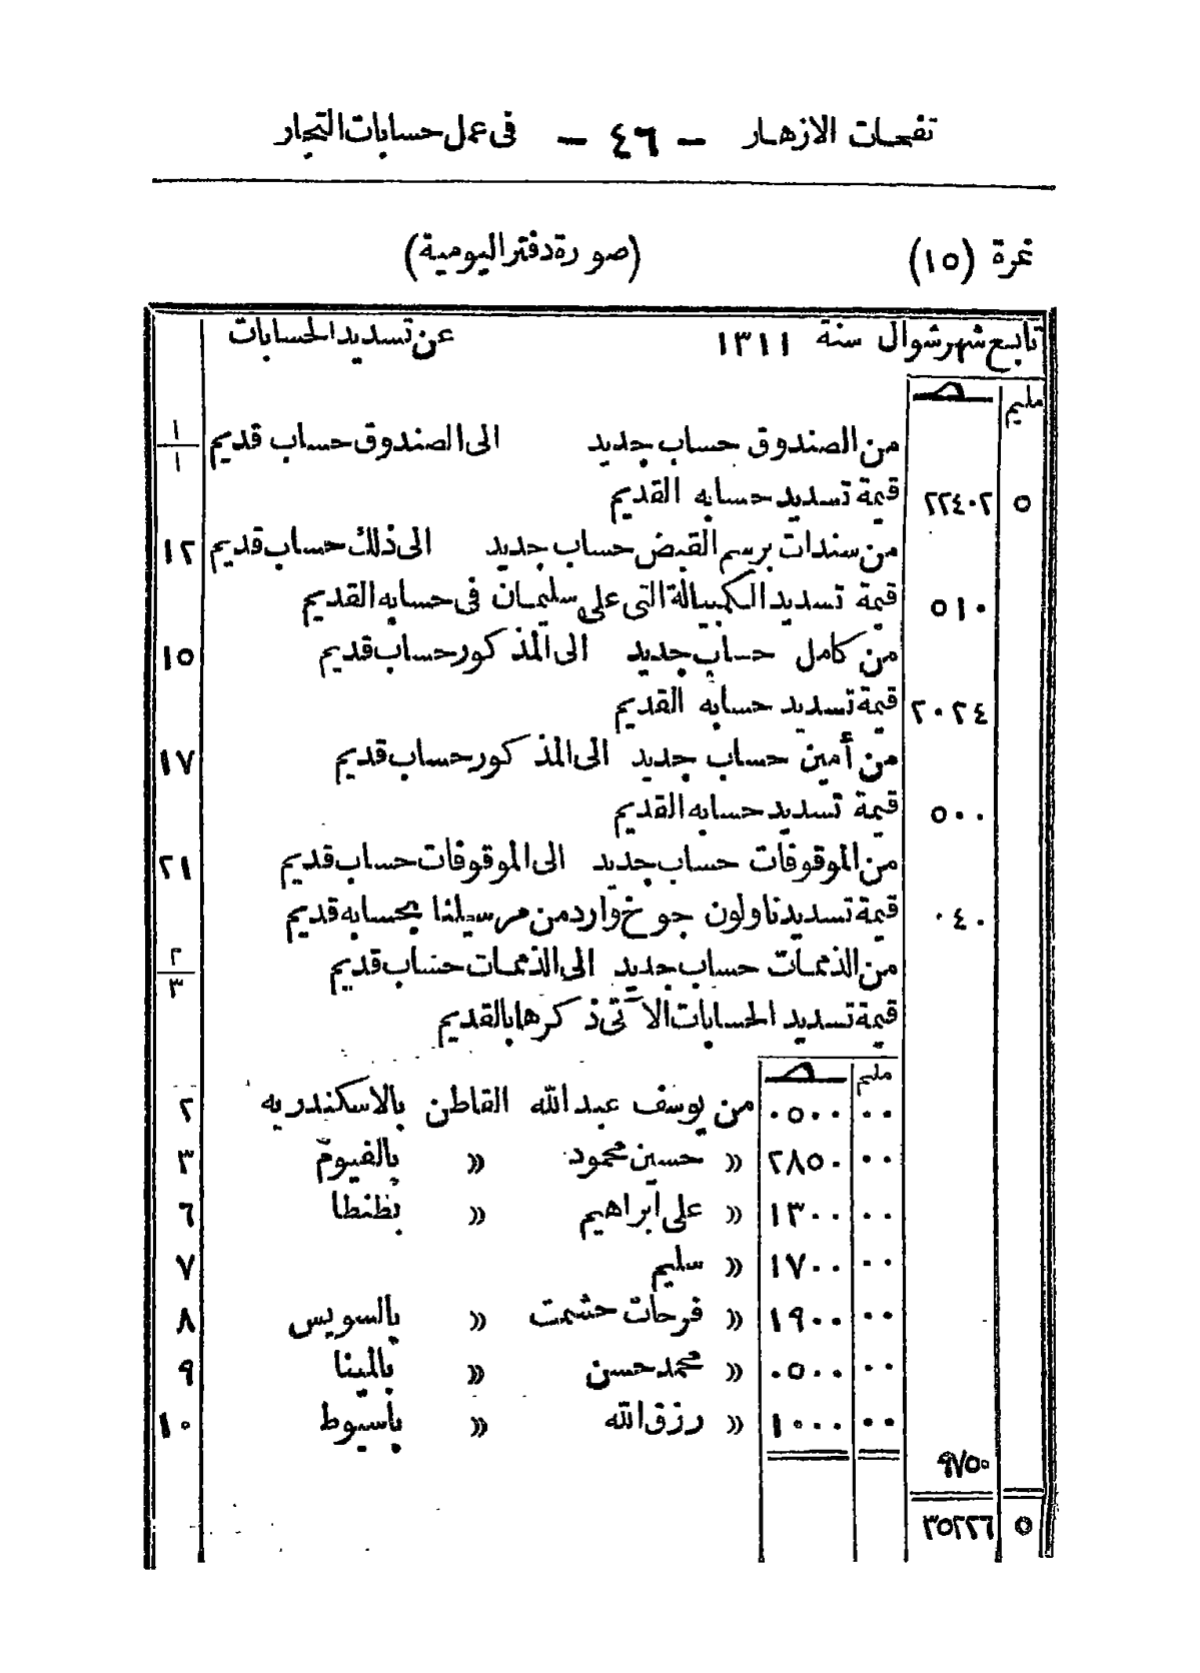 نفحات الازهار — ٤٦ — فى عمل حسابات التجار
نمرة (١٥) (صورة دفتر اليومية)
تابع شهر شوال سنة ١٣١١ عن تسديد الحسابات
مليم صـ
من الصندوق حساب جديد الى الصندوق حساب قديم ١/١
٥ ٢٢٤٠٢ قيمة تسديد حسابه القديم
من سندات برسم القبض حساب جديد الى ذلك حساب قديم ١٢
٥١٠ قيمة تسديد الكمبيالة التى على سليمان فى حسابه القديم
من كامل حساب جديد الى المذكور حساب قديم ١٥
٢٠٢٤ قيمة تسديد حسابه القديم
من أمين حساب جديد الى المذكور حساب قديم ١٧
٥٠٠ قيمة تسديد حسابه القديم
من الموقوفات حساب جديد الى الموقوفات حساب قديم ٢١
٠٤٠ قيمة تسديد ناولون جوخ وارد من مرسيليا بحسابه قديم
من الذممات حساب جديد الى الذممات حساب قديم ٢/٣
قيمة تسديد الحسابات الآتى ذكرها بالقديم
مليم صـ
٠٠ ٠٥٠٠ من يوسف عبد الله القاطن بالاسكندريه ٢
٠٠ ٢٨٥٠ » حسين محمود » بالفيوم ٣
٠٠ ١٣٠٠ » على ابراهيم » بطنطا ٦
٠٠ ١٧٠٠ » سليم ٧
٠٠ ١٩٠٠ » فرحات حشمت » بالسويس ٨
٠٠ ٠٥٠٠ » محمد حسن » بالمينا ٩
٠٠ ١٠٠٠ » رزق الله » بأسيوط ١٠
٩٧٥٠
٥ ٣٥٢٢٦